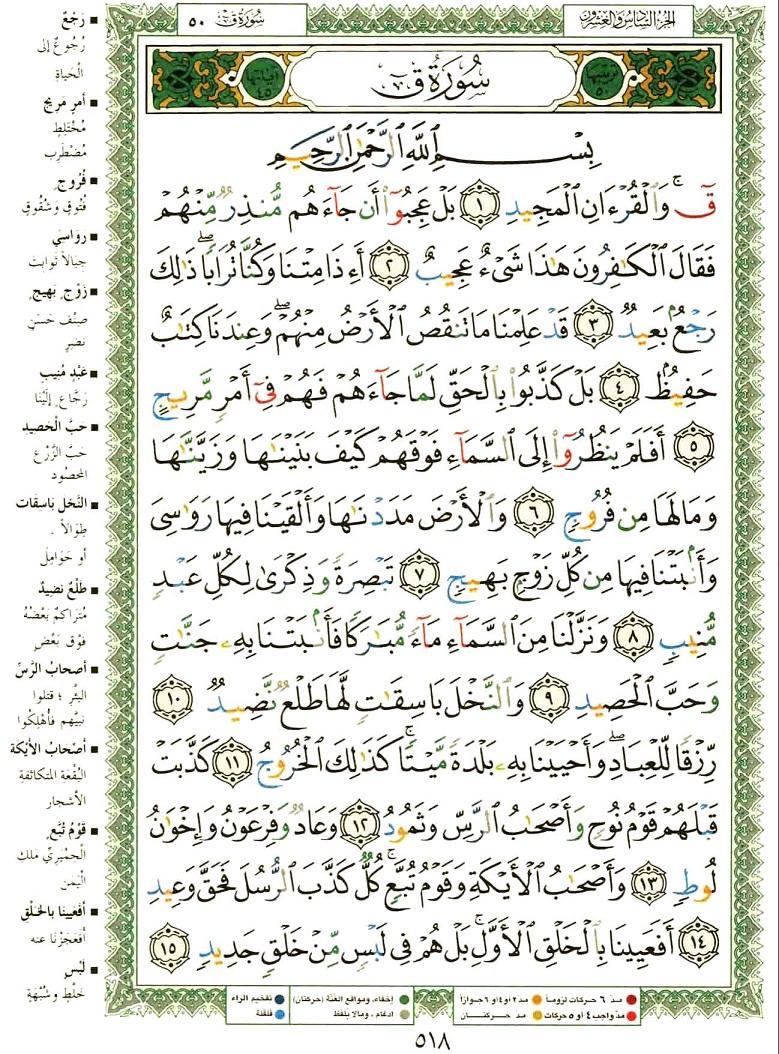 الجزء السادس والعشرون
سورة ق ٥٠
ترتيبها ٥٠
سُورَةُ قٓ
آياتها ٤٥
بِسْمِ ٱللَّهِ ٱلرَّحْمَٰنِ ٱلرَّحِيمِ
قٓ ۚ وَٱلْقُرْءَانِ ٱلْمَجِيدِ ١ بَلْ عَجِبُوٓا۟ أَن جَآءَهُم مُّنذِرٌ مِّنْهُمْ
فَقَالَ ٱلْكَٰفِرُونَ هَٰذَا شَىْءٌ عَجِيبٌ ٢ أَءِذَا مِتْنَا وَكُنَّا تُرَابًا ۖ ذَٰلِكَ
رَجْعٌۢ بَعِيدٌ ٣ قَدْ عَلِمْنَا مَا تَنقُصُ ٱلْأَرْضُ مِنْهُمْ ۖ وَعِندَنَا كِتَٰبٌ
حَفِيظٌۢ ٤ بَلْ كَذَّبُوا۟ بِٱلْحَقِّ لَمَّا جَآءَهُمْ فَهُمْ فِىٓ أَمْرٍ مَّرِيجٍ
٥ أَفَلَمْ يَنظُرُوٓا۟ إِلَى ٱلسَّمَآءِ فَوْقَهُمْ كَيْفَ بَنَيْنَٰهَا وَزَيَّنَّٰهَا
وَمَا لَهَا مِن فُرُوجٍ ٦ وَٱلْأَرْضَ مَدَدْنَٰهَا وَأَلْقَيْنَا فِيهَا رَوَٰسِىَ
وَأَنۢبَتْنَا فِيهَا مِن كُلِّ زَوْجٍۭ بَهِيجٍ ٧ تَبْصِرَةً وَذِكْرَىٰ لِكُلِّ عَبْدٍ
مُّنِيبٍ ٨ وَنَزَّلْنَا مِنَ ٱلسَّمَآءِ مَآءً مُّبَٰرَكًا فَأَنۢبَتْنَا بِهِۦ جَنَّٰتٍ
وَحَبَّ ٱلْحَصِيدِ ٩ وَٱلنَّخْلَ بَاسِقَٰتٍ لَّهَا طَلْعٌ نَّضِيدٌ ١٠
رِّزْقًا لِّلْعِبَادِ ۖ وَأَحْيَيْنَا بِهِۦ بَلْدَةً مَّيْتًا ۚ كَذَٰلِكَ ٱلْخُرُوجُ ١١ كَذَّبَتْ
قَبْلَهُمْ قَوْمُ نُوحٍ وَأَصْحَٰبُ ٱلرَّسِّ وَثَمُودُ ١٢ وَعَادٌ وَفِرْعَوْنُ وَإِخْوَٰنُ
لُوطٍ ١٣ وَأَصْحَٰبُ ٱلْأَيْكَةِ وَقَوْمُ تُبَّعٍ ۚ كُلٌّ كَذَّبَ ٱلرُّسُلَ فَحَقَّ وَعِيدِ
١٤ أَفَعَيِينَا بِٱلْخَلْقِ ٱلْأَوَّلِ ۚ بَلْ هُمْ فِى لَبْسٍ مِّنْ خَلْقٍ جَدِيدٍ ١٥
■ رَجْعٌ
رُجُوعٌ إلى
الْحَياةِ
■ أمرٍ مَرِيجٍ
مُخْتَلِطٍ
مُضْطَرِب
■ فُرُوجٍ
فُتُوقٍ وَشُقُوقٍ
■ رواسي
جبالاً ثَوابِتَ
■ زَوْجٍ بَهيجٍ
صِنْف حَسَنٍ
نضيرٍ
■ عَبْدٍ مُنيبٍ
رَجَّاعٍ إلَيْنَا
■ حَبَّ الْحَصِيدِ
حَبَّ الزَّرْع
المحصُودِ
■ النَّخل بَاسقات
طِوَالاً .
أو حَوَامِلَ
■ طَلْعٌ نضيدٌ
مُتَراكمٌ بَعْضُهُ
فَوْق بَعْضٍ
■ أصحابُ الرَّسِّ
البئرِ ؛ قتلوا
نبيّهم فأهْلِكُوا
■ أصْحَابُ الأيْكَةِ
البُقْعَة المتكاثفةِ
الأشجار
■ قَوْمُ تُبَّعٍ
الحِمْيَرِيِّ مَلك
اليَمن
■ أفَعَيينَا بالخَلْقِ
أفَعَجَزْنَا عنه
■ لَبْسٍ
خَلْطٍ وشُبْهَةٍ
مدّ ٦ حركات لزوماً مدّ ٢ أو ٤ أو ٦ جوازاً
مدّ واجب ٤ أو ٥ حركات مدّ حركتان
إخفاء، ومواقع الغنّة (حركتان)
ادغام ، وما لا يلفظ
تفخيم الراء
قلقلة
٥١٨